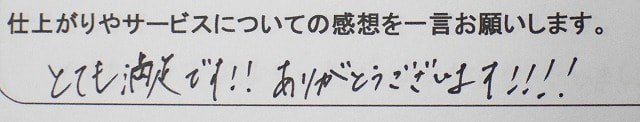 仕上がりやサービスについての感想を一言お願いします。
とても満足です!! ありがとうございます!!!!